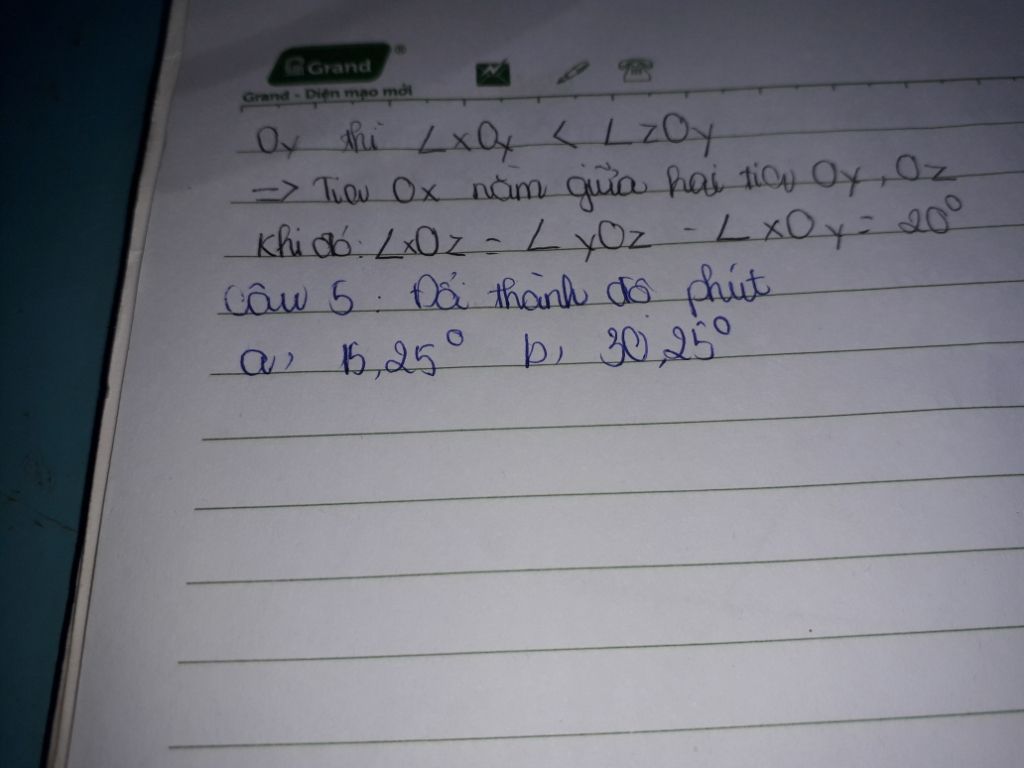 Grand®
Grand - Diện mạo mới
Oy thì ∠xOy < ∠zOy
=> Tia Ox nằm giữa hai tia Oy, Oz
Khi đó: ∠xOz = ∠yOz - ∠xOy = 20°
Câu 5: Đổi thành độ phút
a, 15,25° b, 30,25°